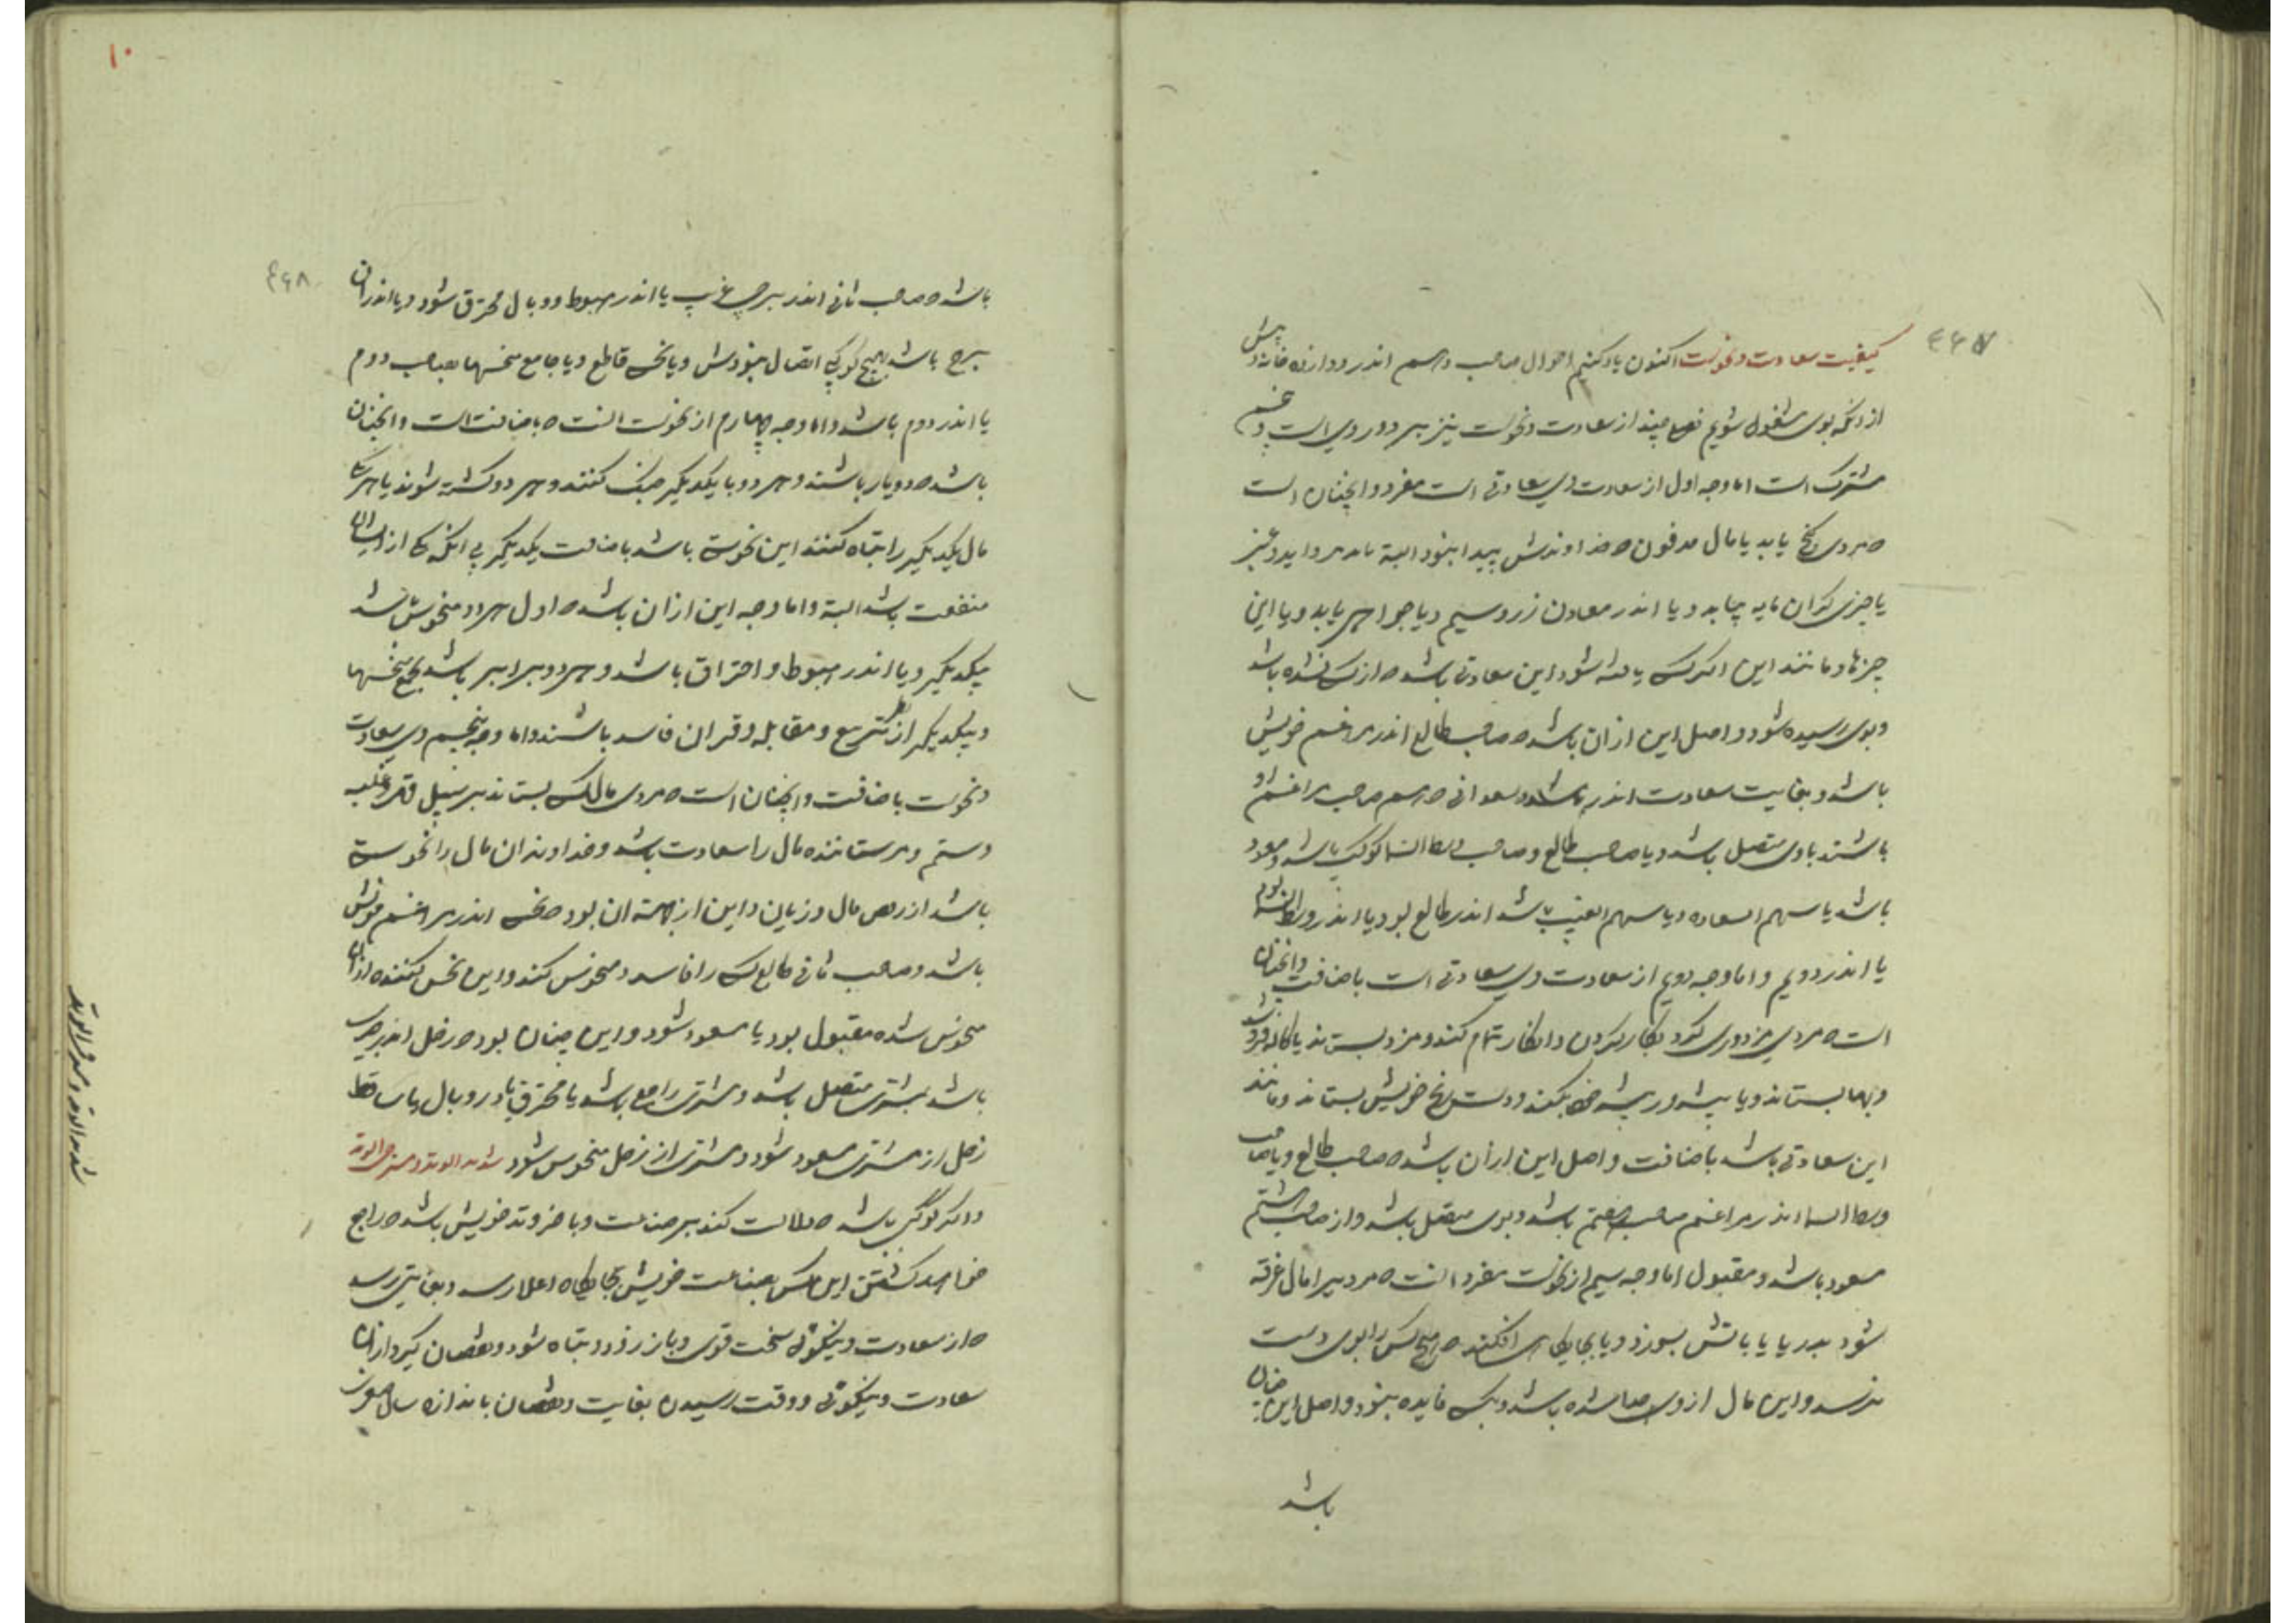 ۴۶۷
کیفیت سعادت و نحوست اکنون یاد کنیم احوال صاحب دهم اندر دوازده خانه و پیش
از انکه بوی مشغول شویم فصلی چند از سعادت و نحوست نیز بر دو روی است و
مشترک است اما وجه اول از سعادت وی سعادتی است مفرد و انچنان است
که مردی گنج یابد یا مال مدفون که خداوندش پیدا نبود البته یا مروارید و عنبر
یا چیزی گران مایه بیابد و یا اندر معادن زر و سیم و یا جواهر یابد و یا این
چیزها و مانند این اگر کسی یافته شود این سعادتی باشد که از کس نشده باشد
و بوی رسیده شود و اصل این ازان باشد که صاحب طالع اندر مراغم خویش
باشد و بغایت سعادت اندر باشد و سعدانی که هم صاحب مراغم او
باشند با وی متصل باشد و یا صاحب طالع و صاحب وسط السما کوکبی باشد و مسعود
باشد یا سهم السعاده و یا سهم الغیب باشد اندر طالع بود یا اندر وسط السما بود
یا اندر دویم و اما وجه دویم از سعادت وی سعادتی است باضافت و انچنان
است که مردی مزدوری کرد بکار کردن و انکار تمام کند و مزد بستاند یا کالا فروشد
و بها بستاند و یا پیشه ور پیشه خود بکند و دست رنج خویش بستاند و مانند
این سعادتی باشد باضافت و اصل این ازان باشد که صاحب طالع و یا صاحب
وسط السما اندر مراغم صاحب هفتم باشد و بوی متصل باشد و از صاحب هشتم
مسعود باشد و مقبول اما وجه سیم از نحوست مفرد انست که مردیرا مال غرقه
شود بدریا یا باتش بسوزد و یا بجایگاهی افکند که هیچ کس را بوی دست
نرسد و این مال از وی جدا شده باشد و بکس فایده نبود و اصل این چنان
باشد
۱۰
۴۶۸
باشد که صاحب ثانی اندر برج غریب یا اندر هبوط و وبال محترق شود و یا اندر ان
برج باشد بهیچ کوکبی اتصال نبودش و یا نحس قاطع و یا جامع نحسها بصاحب دوم
یا اندر دوم باشد و اما وجه چهارم از نحوست انست که باضافت است و انچنان
باشد که دو یار باشند و هر دو با یکدیگر جنگ کنند و هر دو کشته شوند یا هر یک
مال یکدیگر را تباه کنند این نحوستی باشد باضافت یکدیگر بی انکه کسی را ازیشان
منفعت باشد البته و اما وجه این ازان باشد که اول هر دو منحوس باشد
بیکدیگر و یا اندر هبوط و احتراق باشد و هر دو برابر باشد بجمع نحسها
و بیکدیگر از نظر تربیع و مقابله و قران فاسد باشند و اما وجه پنجم وی سعادت
و نحوست باضافت و انچنان است که مردی مال کسی بستاند بر سبیل قهر و غلبه
و ستم و مر ستاننده مال را سعادت باشد و خداوند ان مال را نحوستی
باشد از نقص مال و زیان و این از جهت ان بود که نحس اندر مراغم خویش
باشد و صاحب ثانی طالع کسی را فاسد و منحوس کند و این نحس کننده ازان
منحوس شده مقبول بود یا مسعود شود و این چنان بود که زحل اندر
باشد بمشتری متصل باشد و مشتری راجع باشد یا محترق یا در وبال یا ساقط
زحل از مشتری مسعود شود و مشتری از زحل منحوس شود
و اگر کوکبی باشد که دلالت کند بر صناعت و باخر وتد خویش باشد که راجع
خواهد گشتن این کس بصناعت خویش بجایگاه اعلا رسد و بغایتی رسد
که از سعادت و نیکوئی سخت قوی و باز زود تباه شود و نقصان گیرد ازان
سعادت و نیکوئی و وقت رسیدن بغایت و نقصان باندازه سال